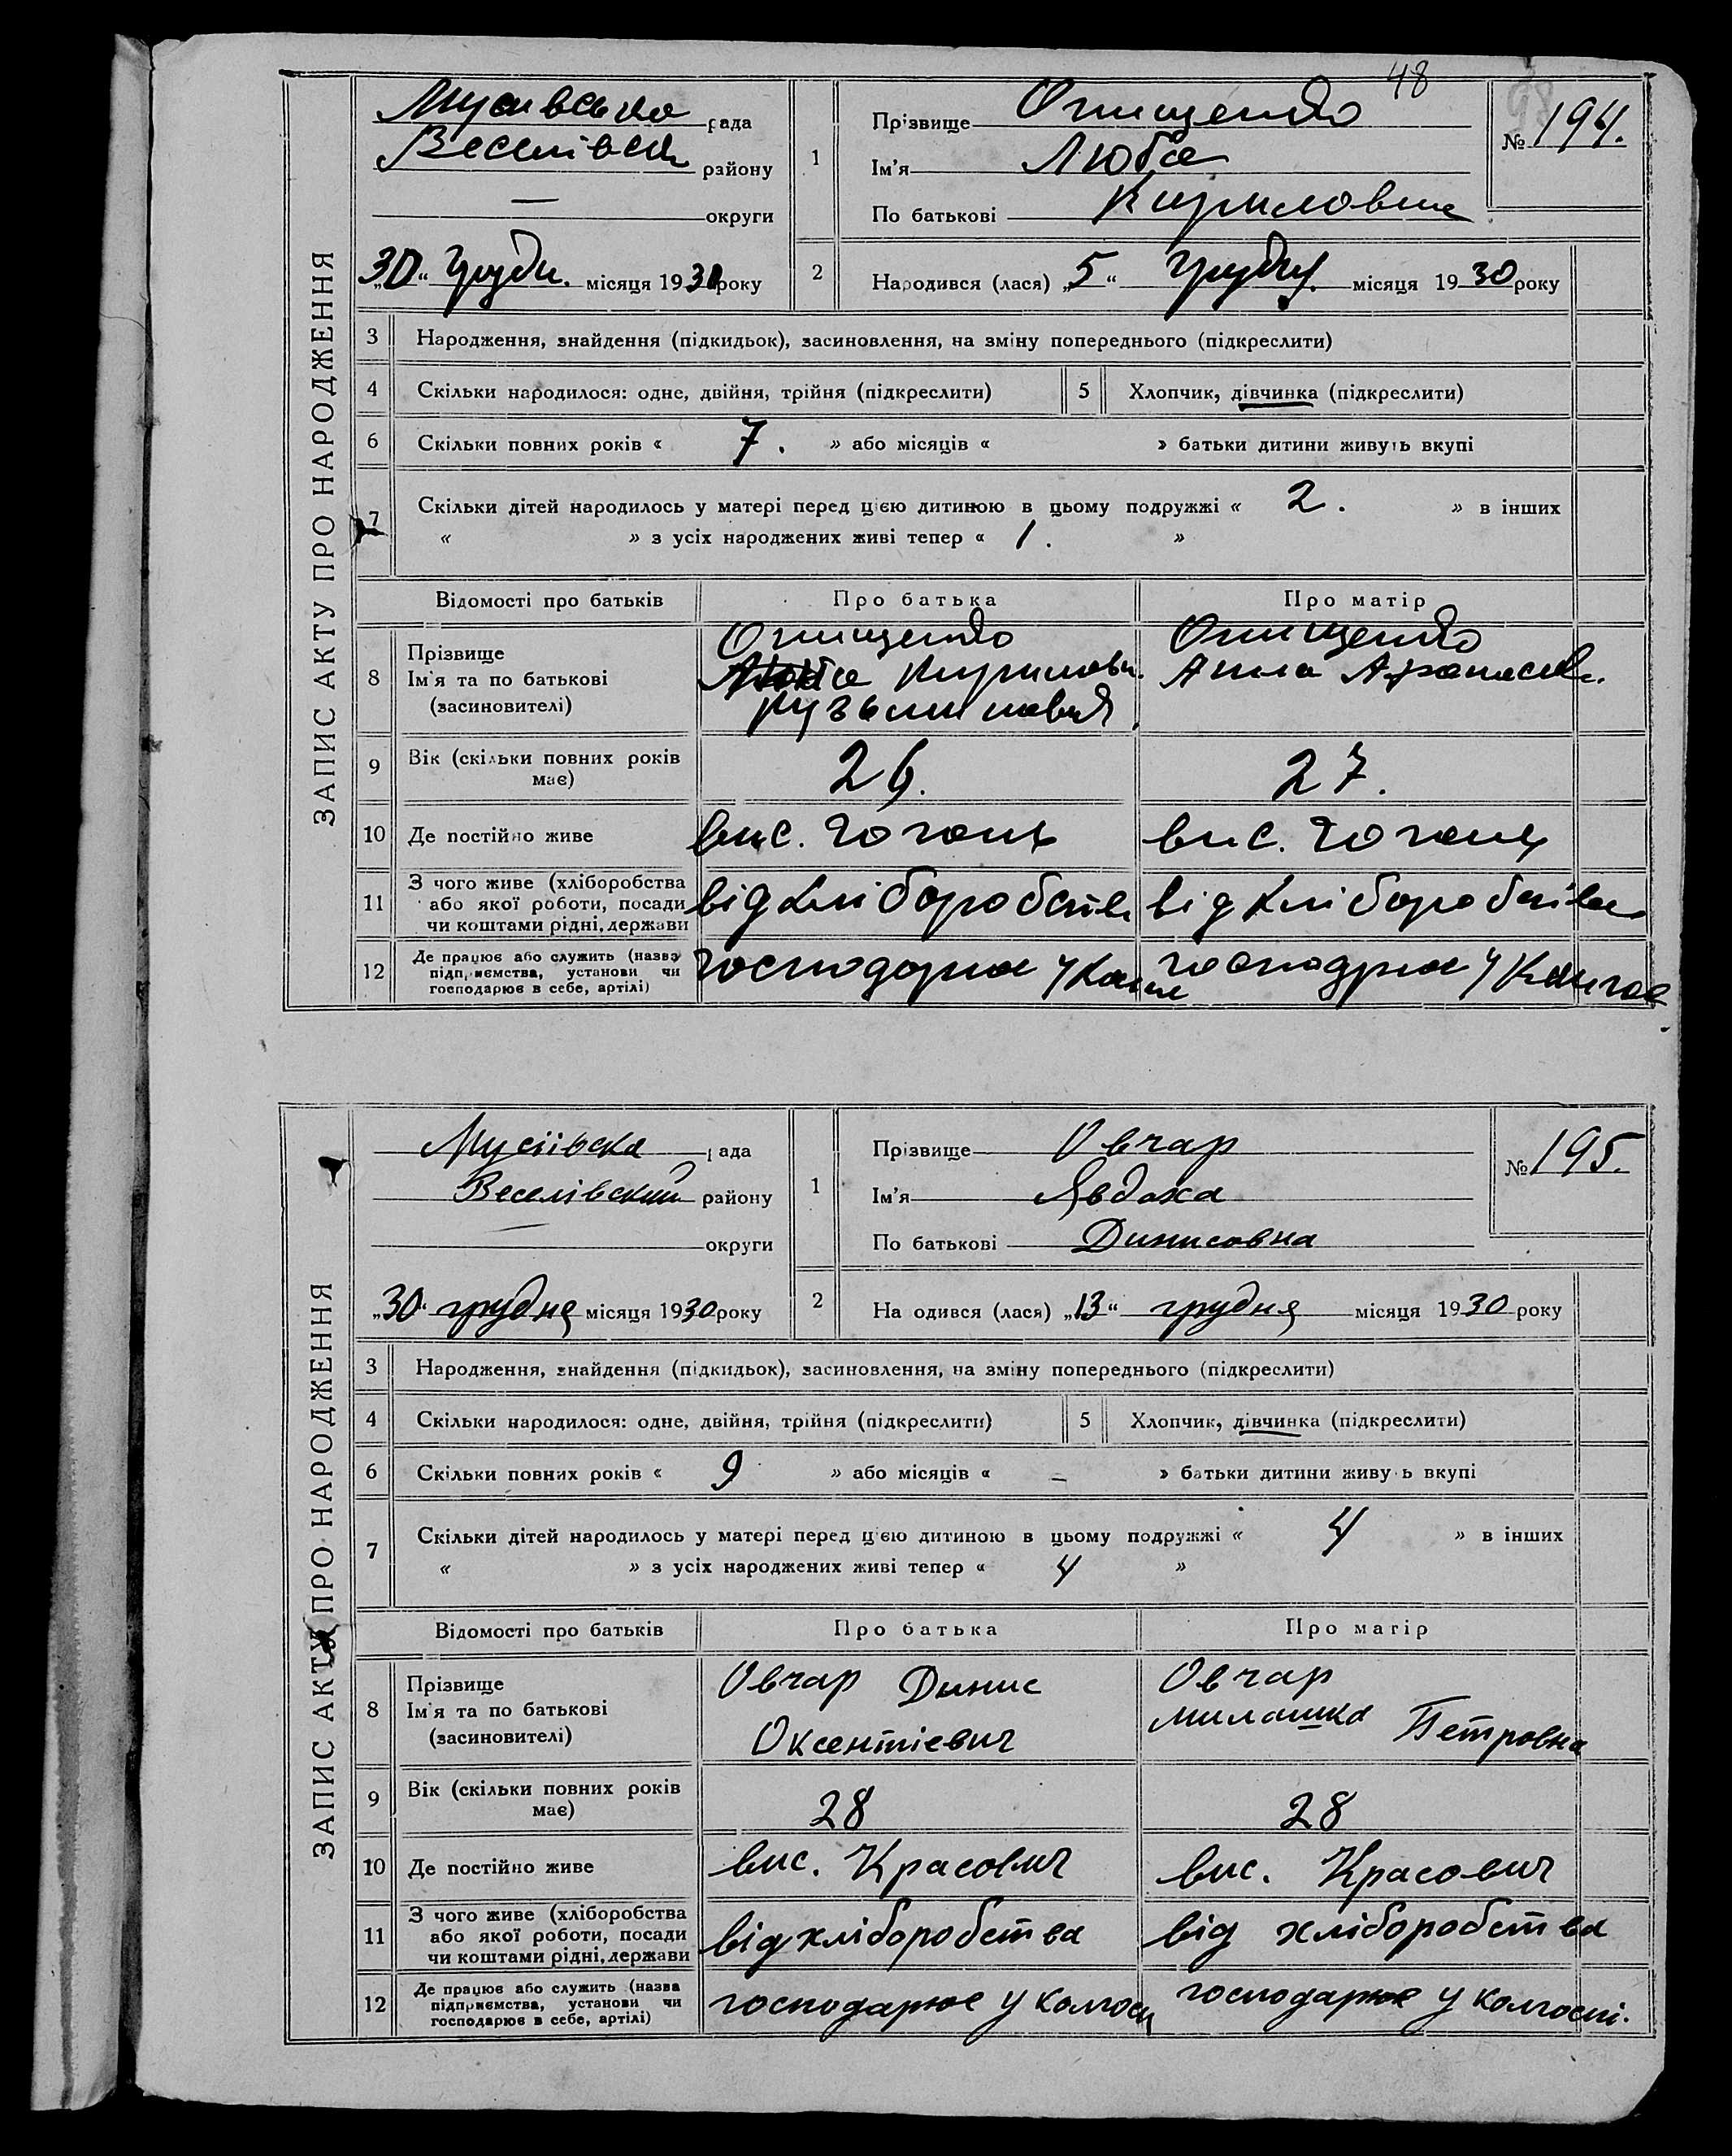 48
ЗАПИС АКТУ ПРО НАРОДЖЕННЯ
Мусіївська рада
Веселівськ району
— округи
„30“ Грудн. місяця 1930 року
1
Прізвище Онищенко
Ім'я Люба
По батькові Кириловна
№ 194.
2
Народився (лася) „5“ Грудня. місяця 1930 року
3 Народження, знайдення (підкидьок), засиновлення, на зміну попереднього (підкреслити)
4 Скільки народилося: одне, двійня, трійня (підкреслити) 5 Хлопчик, дівчинка (підкреслити)
6 Скільки повних років « 7. » або місяців « » батьки дитини живуть вкупі
7 Скільки дітей народилось у матері перед цією дитиною в цьому подружжі « 2. » в інших
« » з усіх народжених живі тепер « 1. »
Відомості про батьків Про батька Про матір
8 Прізвище
Ім'я та по батькові
(засиновителі)
Онищенко
Кузьминович
Онищенко
Анна Афанасьев.
9 Вік (скільки повних років має) 26. 27.
10 Де постійно живе вис.
вис.
11 З чого живе (хліборобства
або якої роботи, посади
чи коштами рідні, держави
від хліборобства від хліборобства
12 Де працює або служить (назва
підприємства, установи чи
господарює в себе, артілі)
господарює у господарює у
ЗАПИС АКТУ ПРО НАРОДЖЕННЯ
Мусіївска рада
Веселівский району
— округи
„30“ грудня місяця 1930 року
1
Прізвище Овчар
Ім'я Явдоха
По батькові Динисовна
№ 195.
2
На одився (лася) „13“ грудня місяця 1930 року
3 Народження, знайдення (підкидьок), засиновлення, на зміну попереднього (підкреслити)
4 Скільки народилося: одне, двійня, трійня (підкреслити) 5 Хлопчик, дівчинка (підкреслити)
6 Скільки повних років « 9 » або місяців « – » батьки дитини живу ь вкупі
7 Скільки дітей народилось у матері перед цією дитиною в цьому подружжі « 4 » в інших
« » з усіх народжених живі тепер « 4 »
Відомості про батьків Про батька Про матір
8 Прізвище
Ім'я та по батькові
(засиновителі)
Овчар Динис
Оксентіевич
Овчар
милашка Петровна
9 Вік (скільки повних років має) 28 28
10 Де постійно живе вис. Красович вис. Красович
11 З чого живе (хліборобства
або якої роботи, посади
чи коштами рідні, держави
від хліборобства від хліборобства
12 Де працює або служить (назва
підприємства, установи чи
господарює в себе, артілі)
господарює у колгосп господарює у колгоспі.